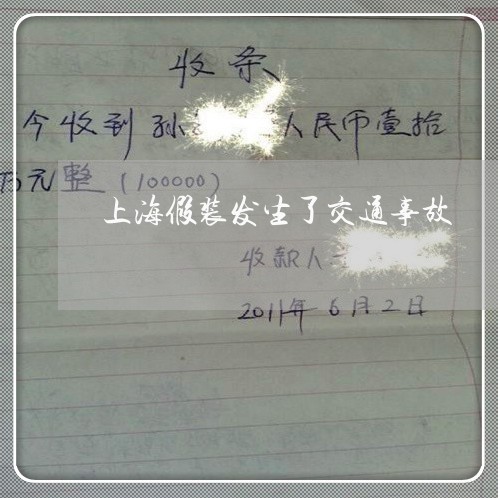 收条
今收到孙 人民币壹拾
万元整(100000)
上海假装发生了交通事故
收款人
2011年6月2日